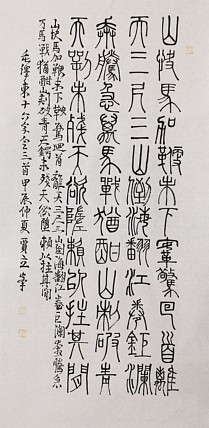 山快馬加鞭未下鞍驚回首離
天三尺三山倒海翻江卷鉅瀾
奔騰急萬馬戰猶酣山刺破青
天鍔未殘天欲墮賴以拄其間
山快馬加鞭未下鞍驚回首離天三尺三山倒海翻江卷巨瀾奔騰急
万馬戰猶酣山刺破青天鍔未殘天欲墮賴以拄其間
毛澤東十六字令三首甲辰仲夏賈立